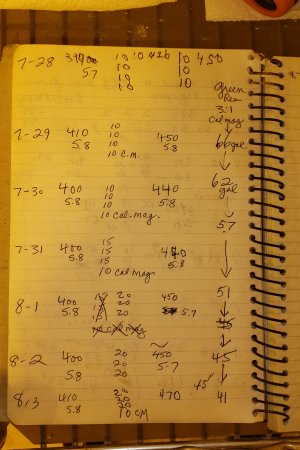 7-28 400 10 10 420 10 450
5.7 10 10
10 10
10
green
Rea
3:1
Cal mag
7-29 410 10 450 66 gal
5.8 10 5.8
10
10 C.M.
7-30 400 10 440 62
5.8 10 5.8 gal
10
10 cal-mag.
57
7-31 400 15 440
5.8 15 5.8
15
10 cal mag
51
8-1 400 15 20 450
5.8 15 20 5.7
15 20
10 cal mag
45
8-2 400 20 450 45
5.8 20 5-7
20
45
8,3 410 20 470 41
5.8 20
20
10 CM